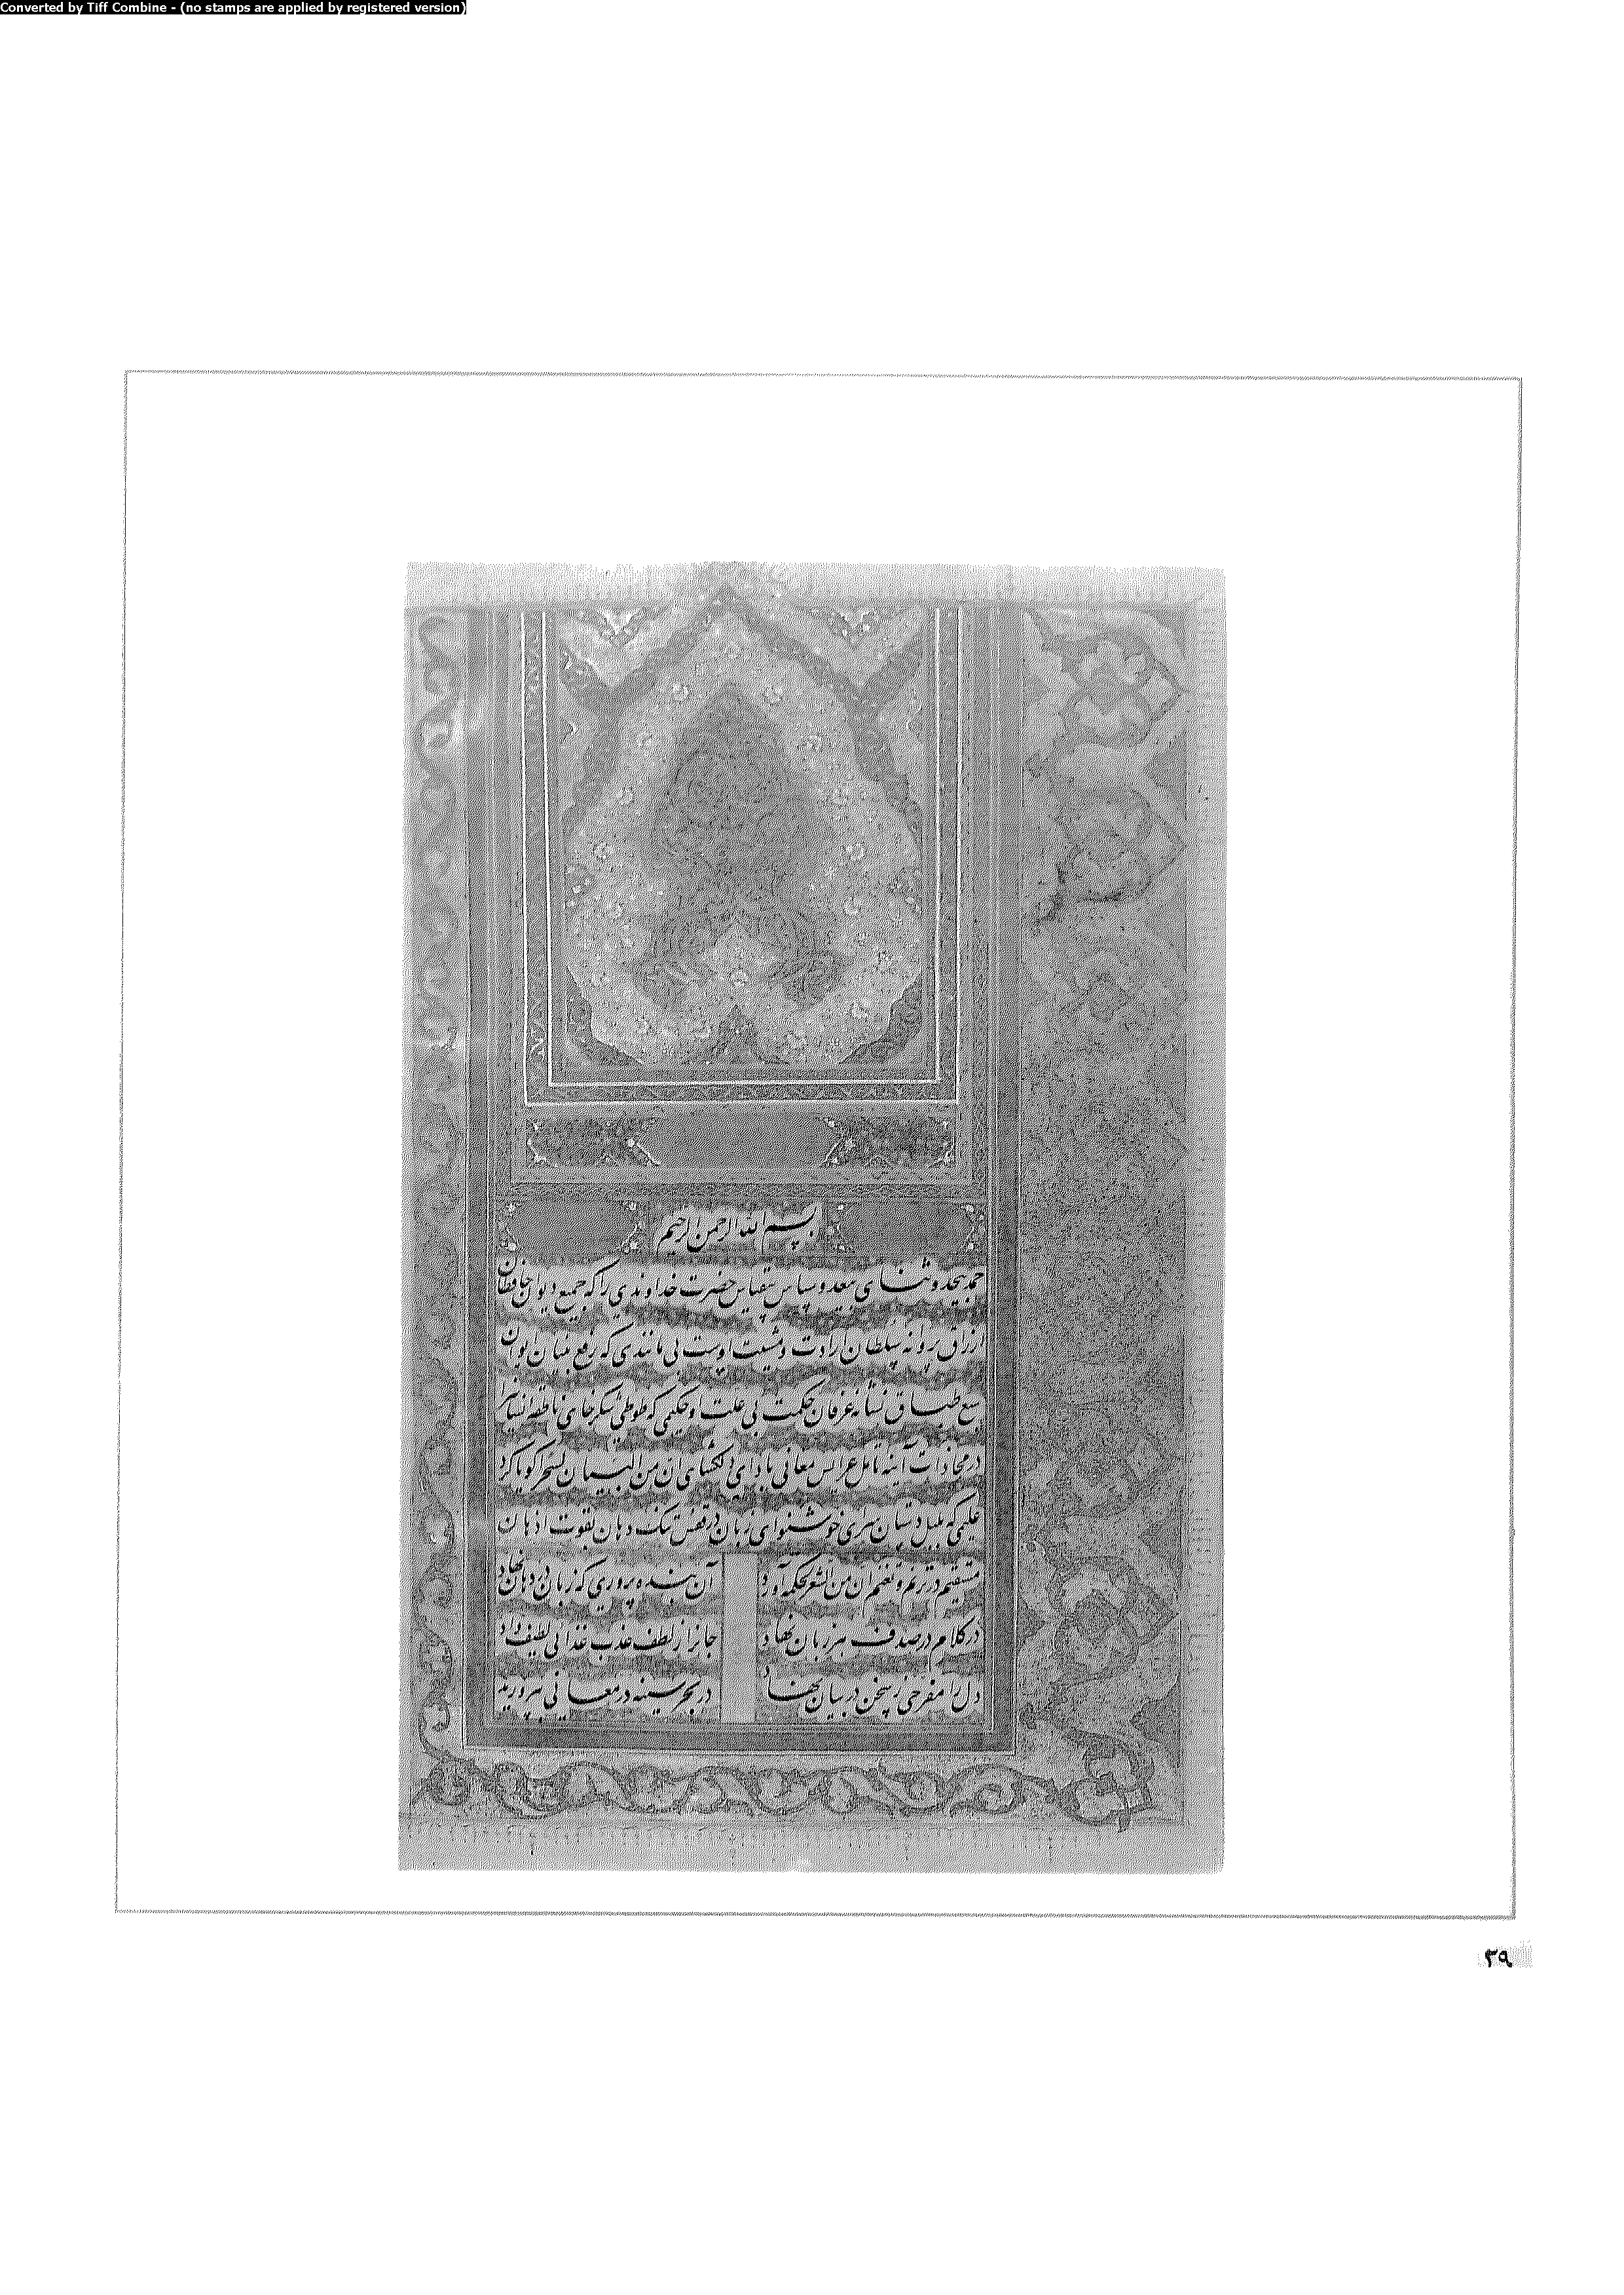 Converted by Tiff Combine - (no stamps are applied by registered version)
بسم الله الرحمن الرحیم
حمد بیحد و ثنای بیعد و سپاس بیقیاس حضرت خداوندی را که جمیع دیوان حافظان
ارزاق پروانه سلطان ارادت و مشیت اوست بی مانندی که رفع بنیان ایوان
سبع طباق نشانه عرفان حکمت بی علت او حکیمی که طوطی شکرخای ناطقه انسانیرا
در محاذات آینه تامل عرایس معانی بادای دلکشای ان من البیان لسحرا گویا کرد
علیمی که بلبل دستان سرای خوشنوای زبان در قفس تنک دهان بقوت اذهان
مستقیم در ترنم و تنغم ان من الشعر لحکمه آورد آن بنده پروری که زبان در دهان نهاد
در کلام در صدف هر زبان نهاد جانرا ز لطف عذب غذائی لطیف داد
دل را مفرحی ز سخن در بیان نهاد در بحر سینه در معانی بپرورید
۳۹